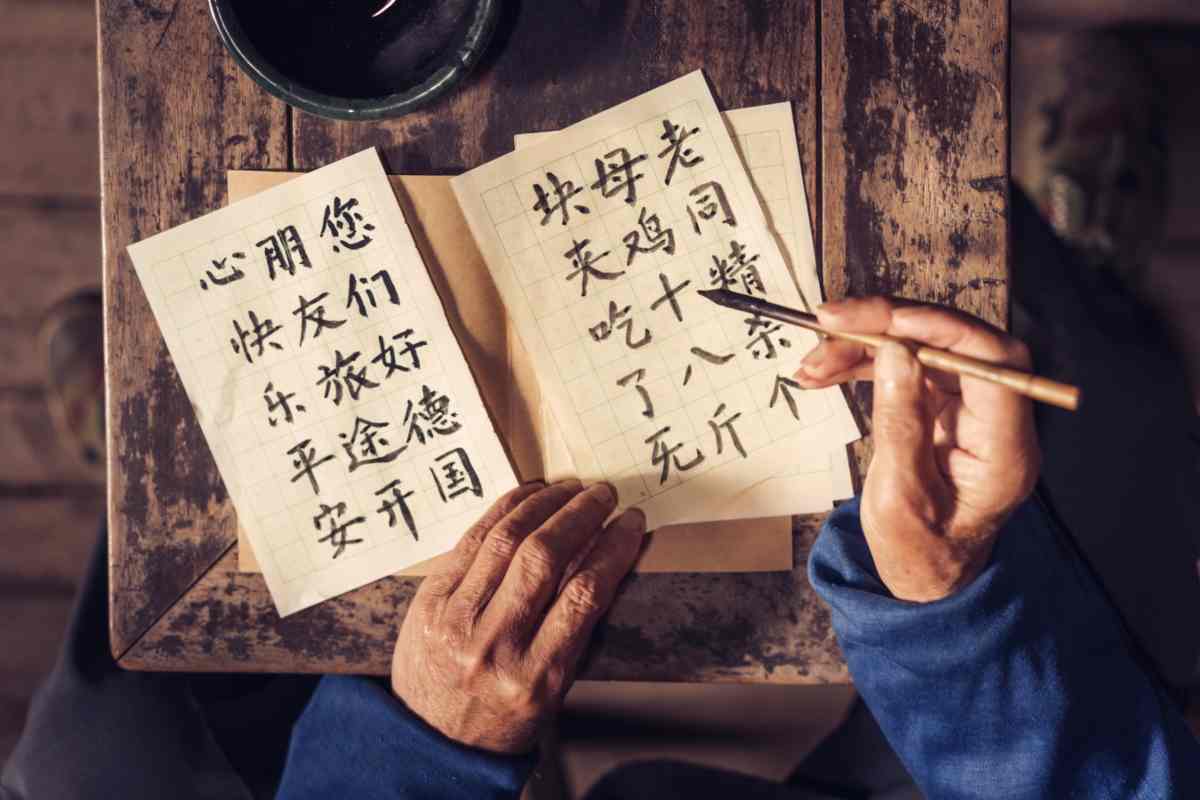 您们好德国
朋友旅途开
心快乐平安
老同精杂个
母鸡十八斤
块夹吃了